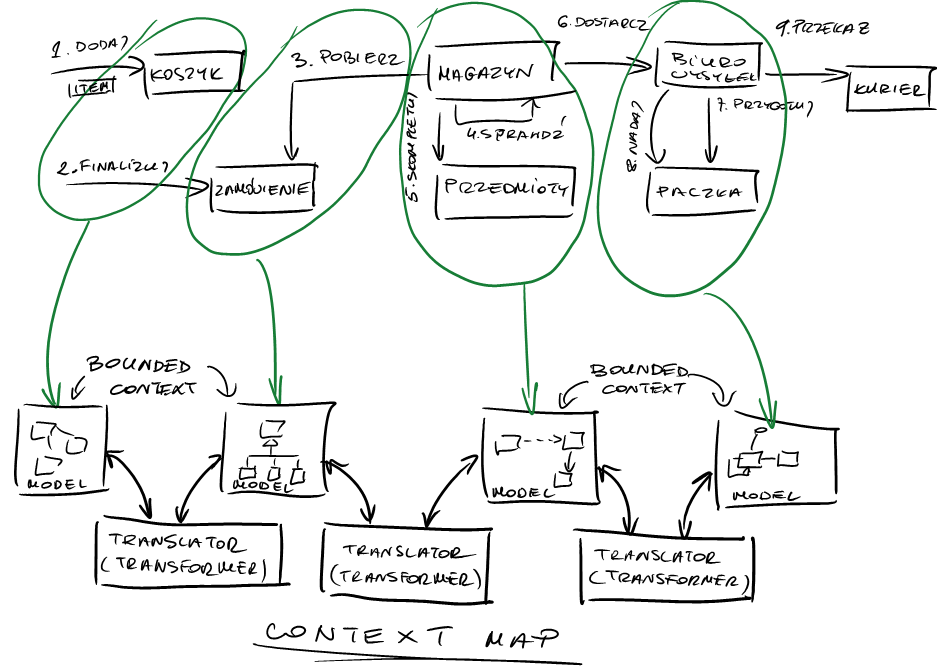 1. DODAJ
ITEM
KOSZYK
2. FINALIZUJ
ZAMÓWIENIE
3. POBIERZ
MAGAZYN
4. SPRAWDŹ
5. SKOMPLETUJ
PRZEDMIOTY
6. DOSTARCZ
BIURO
WYSYŁEK
7. PRZYGOTUJ
8. NADAJ
PACZKA
9. PRZEKAŻ
KURIER
BOUNDED
CONTEXT
BOUNDED
CONTEXT
MODEL
MODEL
MODEL
MODEL
TRANSLATOR
(TRANSFORMER)
TRANSLATOR
(TRANSFORMER)
TRANSLATOR
(TRANSFORMER)
CONTEXT MAP